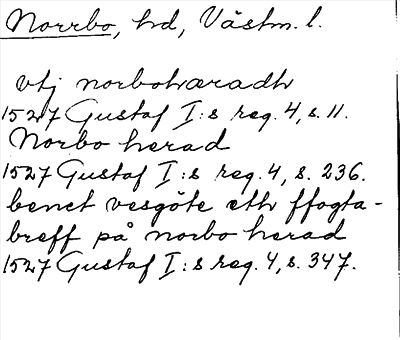 Norrbo, hd, Västm. l.
vtj norboharadh
1527 Gustaf I:s reg. 4, s. 11.
Norbo herad
1527 Gustaf I:s reg. 4, s. 236.
benct vesgöte eth ffogta-
breff på norbo herad
1527 Gustaf I:s reg. 4, s. 347.